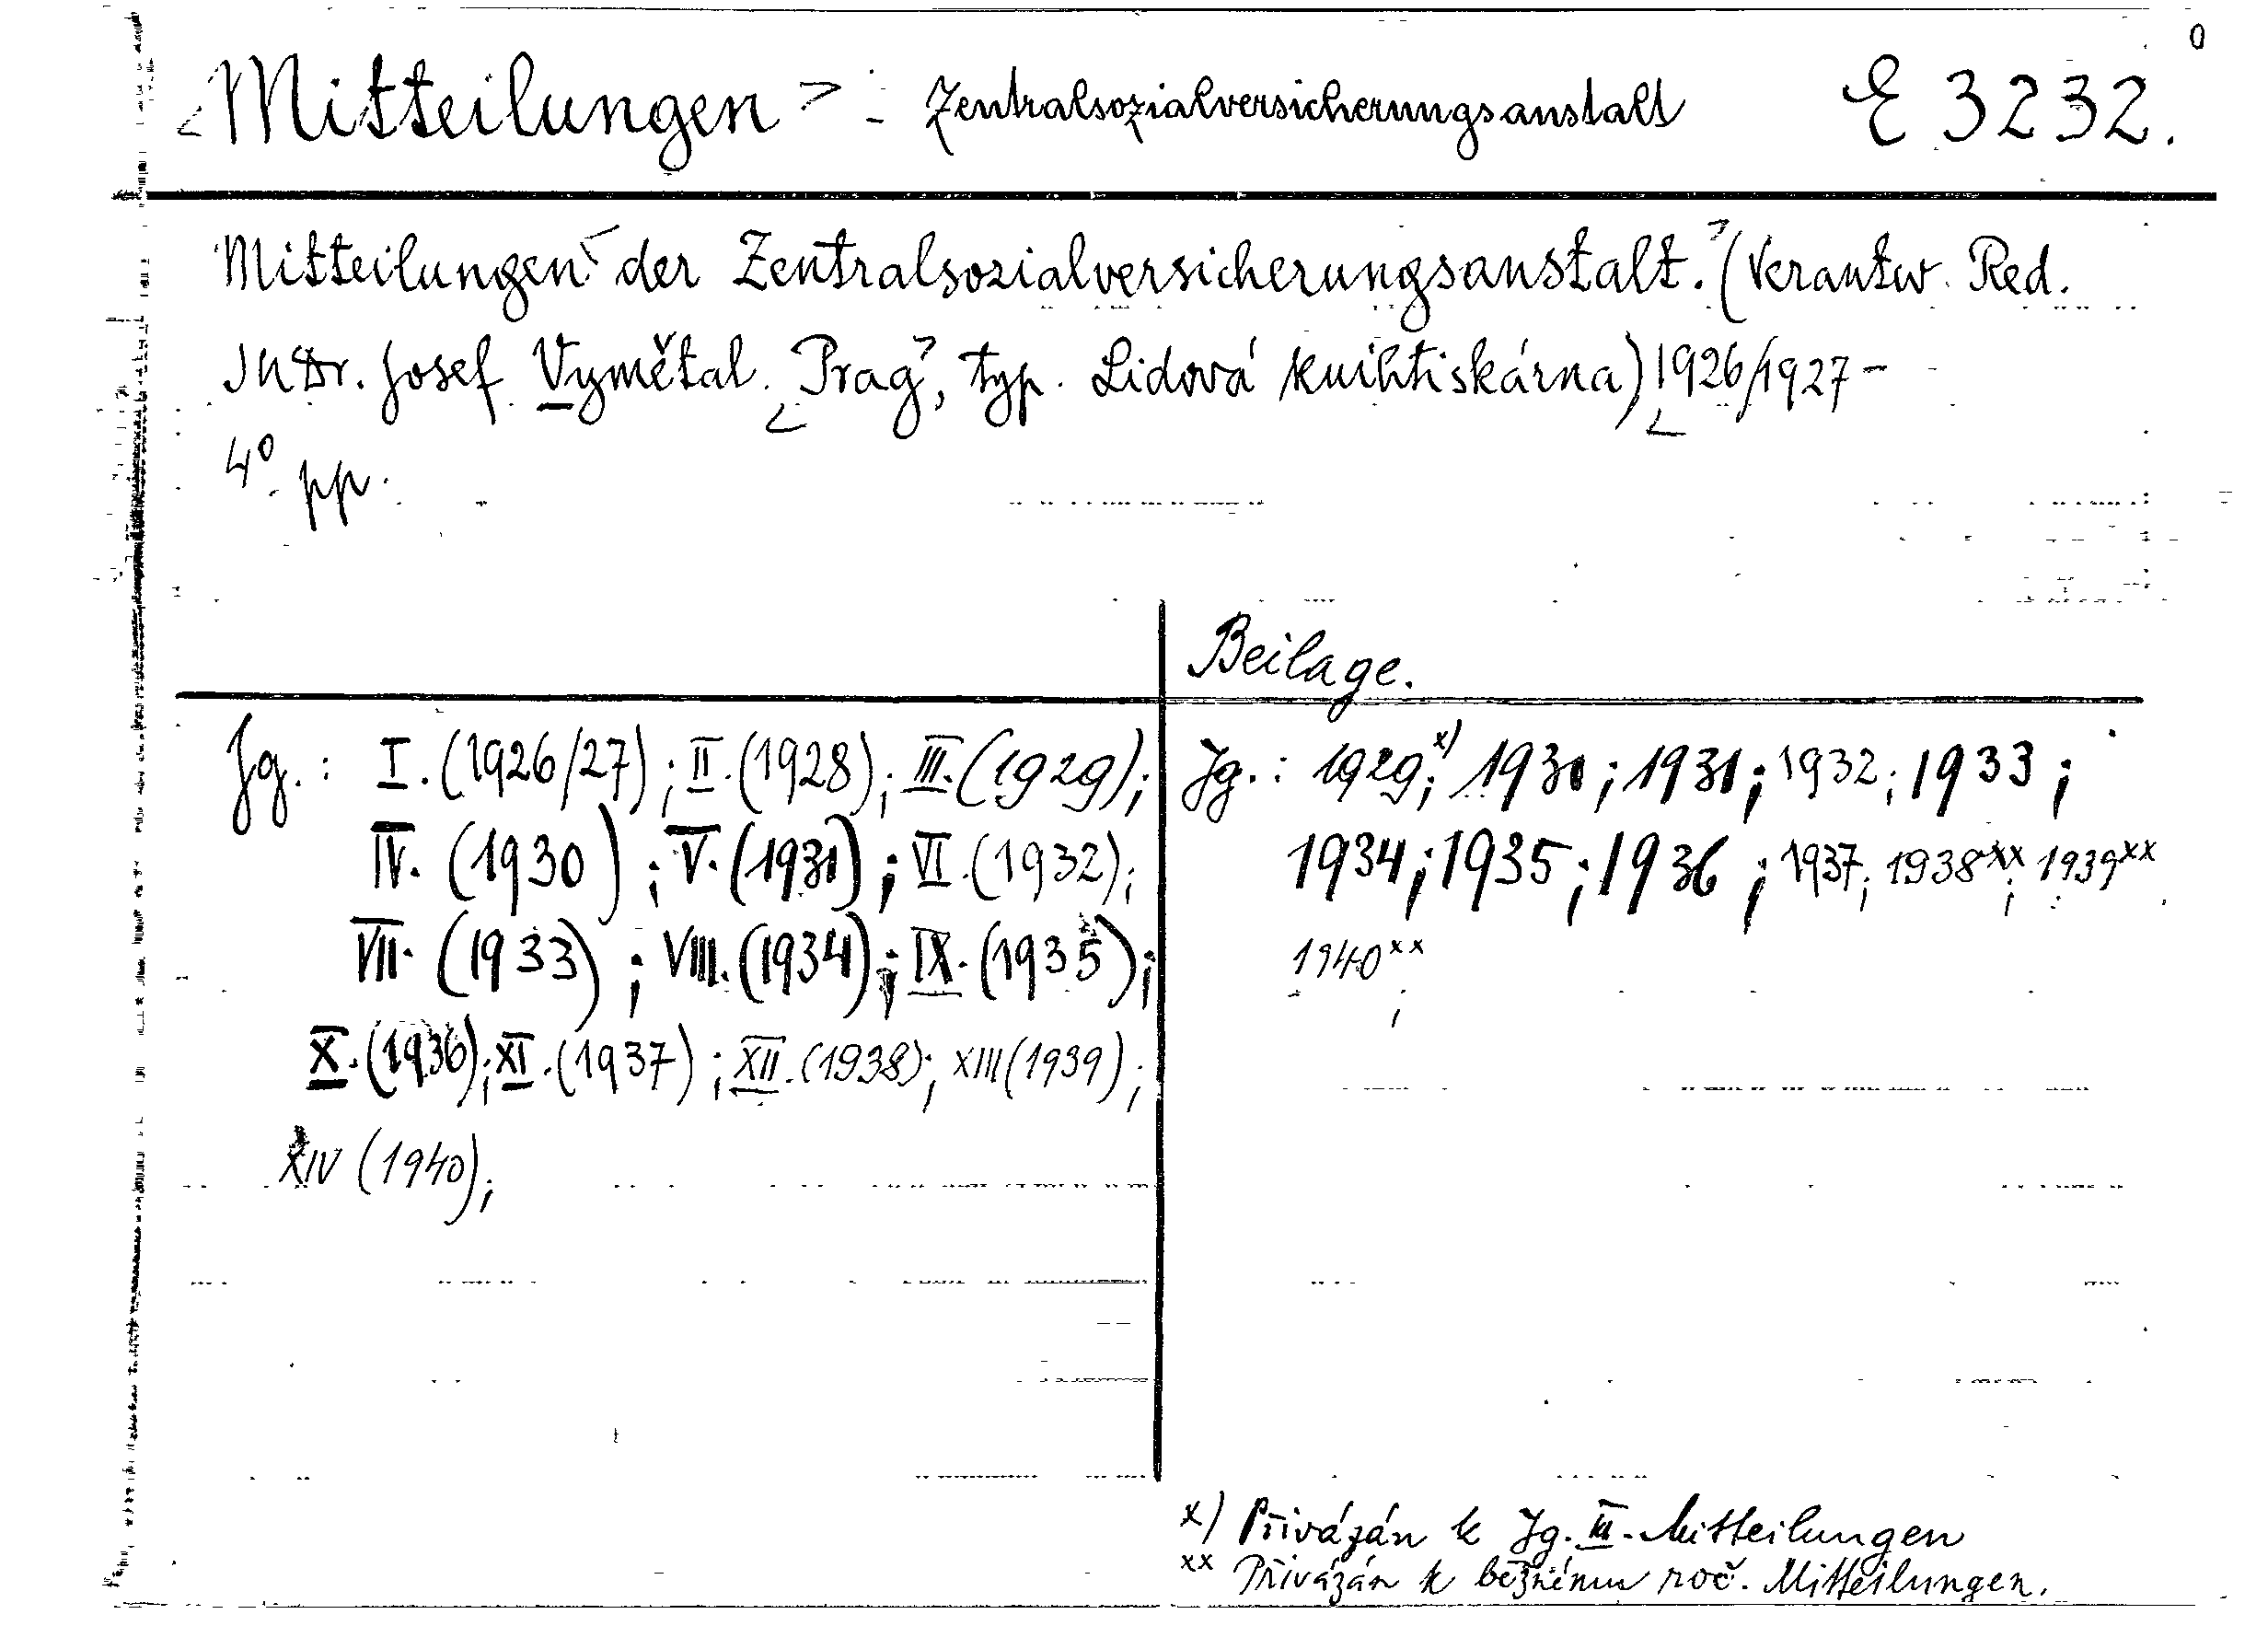 Mitteilungen - Zentralsozialversicherungsanstalt E 3232.
Mitteilungen der Zentralsozialversicherungsanstalt. (Verantw. Red.
JUDr. Josef Vymětal. Prag, typ. Lidová knihtiskárna) 1926/1927 -
4° pp.
Beilage.
Jg.: I. (1926/27); II. (1928); III. (1929);
IV. (1930); V. (1931); VI. (1932);
VII. (1933); VIII. (1934); IX. (1935);
X. (1936); XI. (1937); XII. (1938); XIII (1939);
XIV (1940);
Jg.: 1929;x) 1930; 1931; 1932; 1933;
1934; 1935; 1936; 1937; 1938xx; 1939xx
1940xx;
x) Přivázán k Jg. III. Mitteilungen
xx Přivázán k běžnému roč. Mitteilungen.